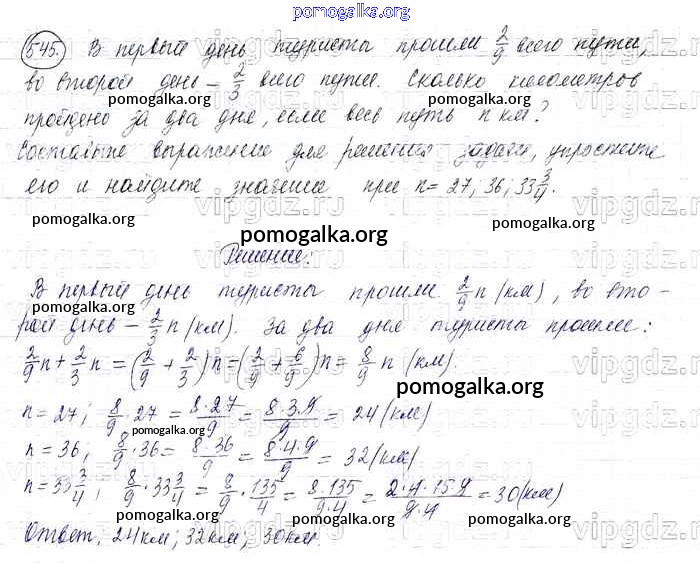 pomogalka.org
545. В первый день туристы прошли 2/9 всего пути,
во второй день – 2/3 всего пути. Сколько километров
pomogalka.org pomogalka.org
пройдено за два дня, если весь путь n км?
Составьте выражение для решения задачи, упростите
его и найдите значение при n = 27; 36; 33 3/4.
pomogalka.org pomogalka.org
pomogalka.org
Решение:
В первый день туристы прошли 2/9 n (км), во вто-
рой день – 2/3 n (км). За два дня туристы прошли:
2/9 n + 2/3 n = (2/9 + 2/3) n = (2/9 + 6/9) n = 8/9 n (км).
pomogalka.org
n = 27; 8/9 · 27 = 8·27/9 = 8·3·9/9 = 24 (км)
pomogalka.org
n = 36; 8/9 · 36 = 8·36/9 = 8·4·9/9 = 32 (км)
pomogalka.org
n = 33 3/4; 8/9 · 33 3/4 = 8/9 · 135/4 = 8·135/9·4 = 2·4·15·9/9·4 = 30 (км)
pomogalka.org pomogalka.org
Ответ, 24 км; 32 км; 30 км.
vipgdz.ru